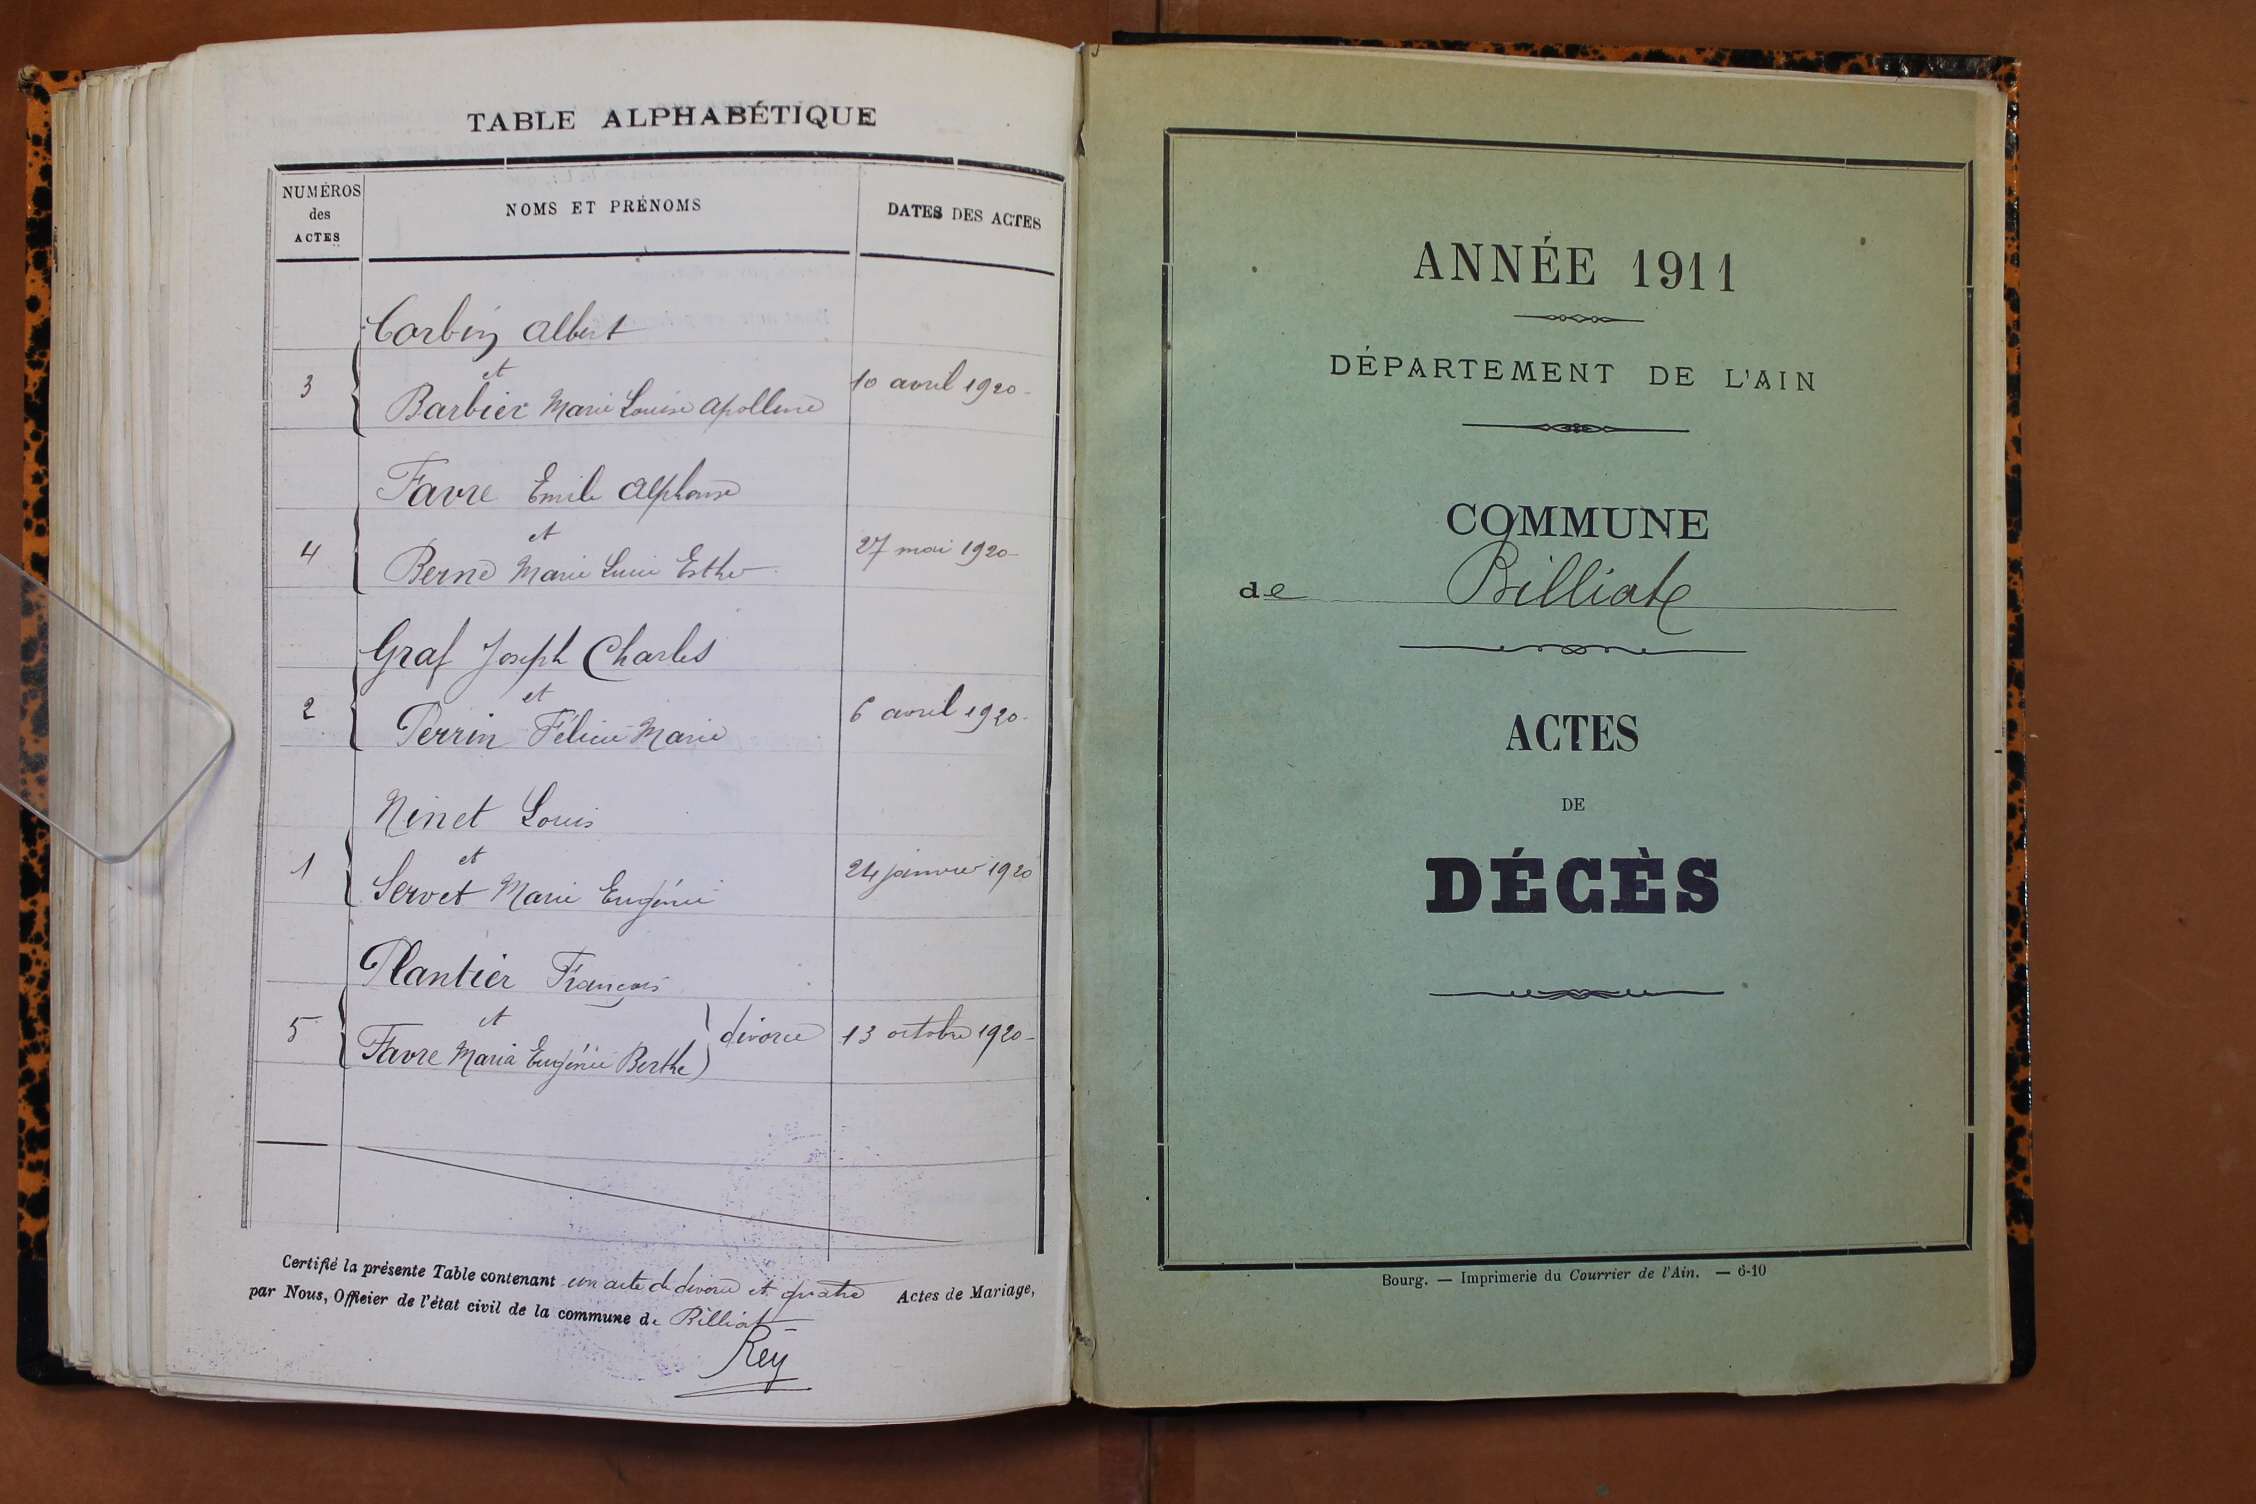 TABLE ALPHABÉTIQUE
NUMÉROS
des
ACTES
NOMS ET PRÉNOMS
DATES DES ACTES
Corbin Albert
et
3
Barbier Marie Louise Apolline
10 avril 1920
Favre Emile Alphonse
et
4
Berne Marie Lucie Esther
27 mai 1920
Graf Joseph Charles
et
2
Perrin Félicie Marie
6 avril 1920
Ninet Louis
et
1
Servet Marie Eugénie
24 janvier 1920
Plantier François
et
5
Favre Maria Eugénie Berthe
divorce
13 octobre 1920
Certifié la présente Table contenant un acte de divorce et quatre Actes de Mariage,
par Nous, Officier de l'état civil de la commune de Billiat
Rey
ANNÉE 1911
DÉPARTEMENT DE L'AIN
COMMUNE
de Billiat
ACTES
DE
DÉCÈS
Bourg. — Imprimerie du Courrier de l'Ain. — 6-10